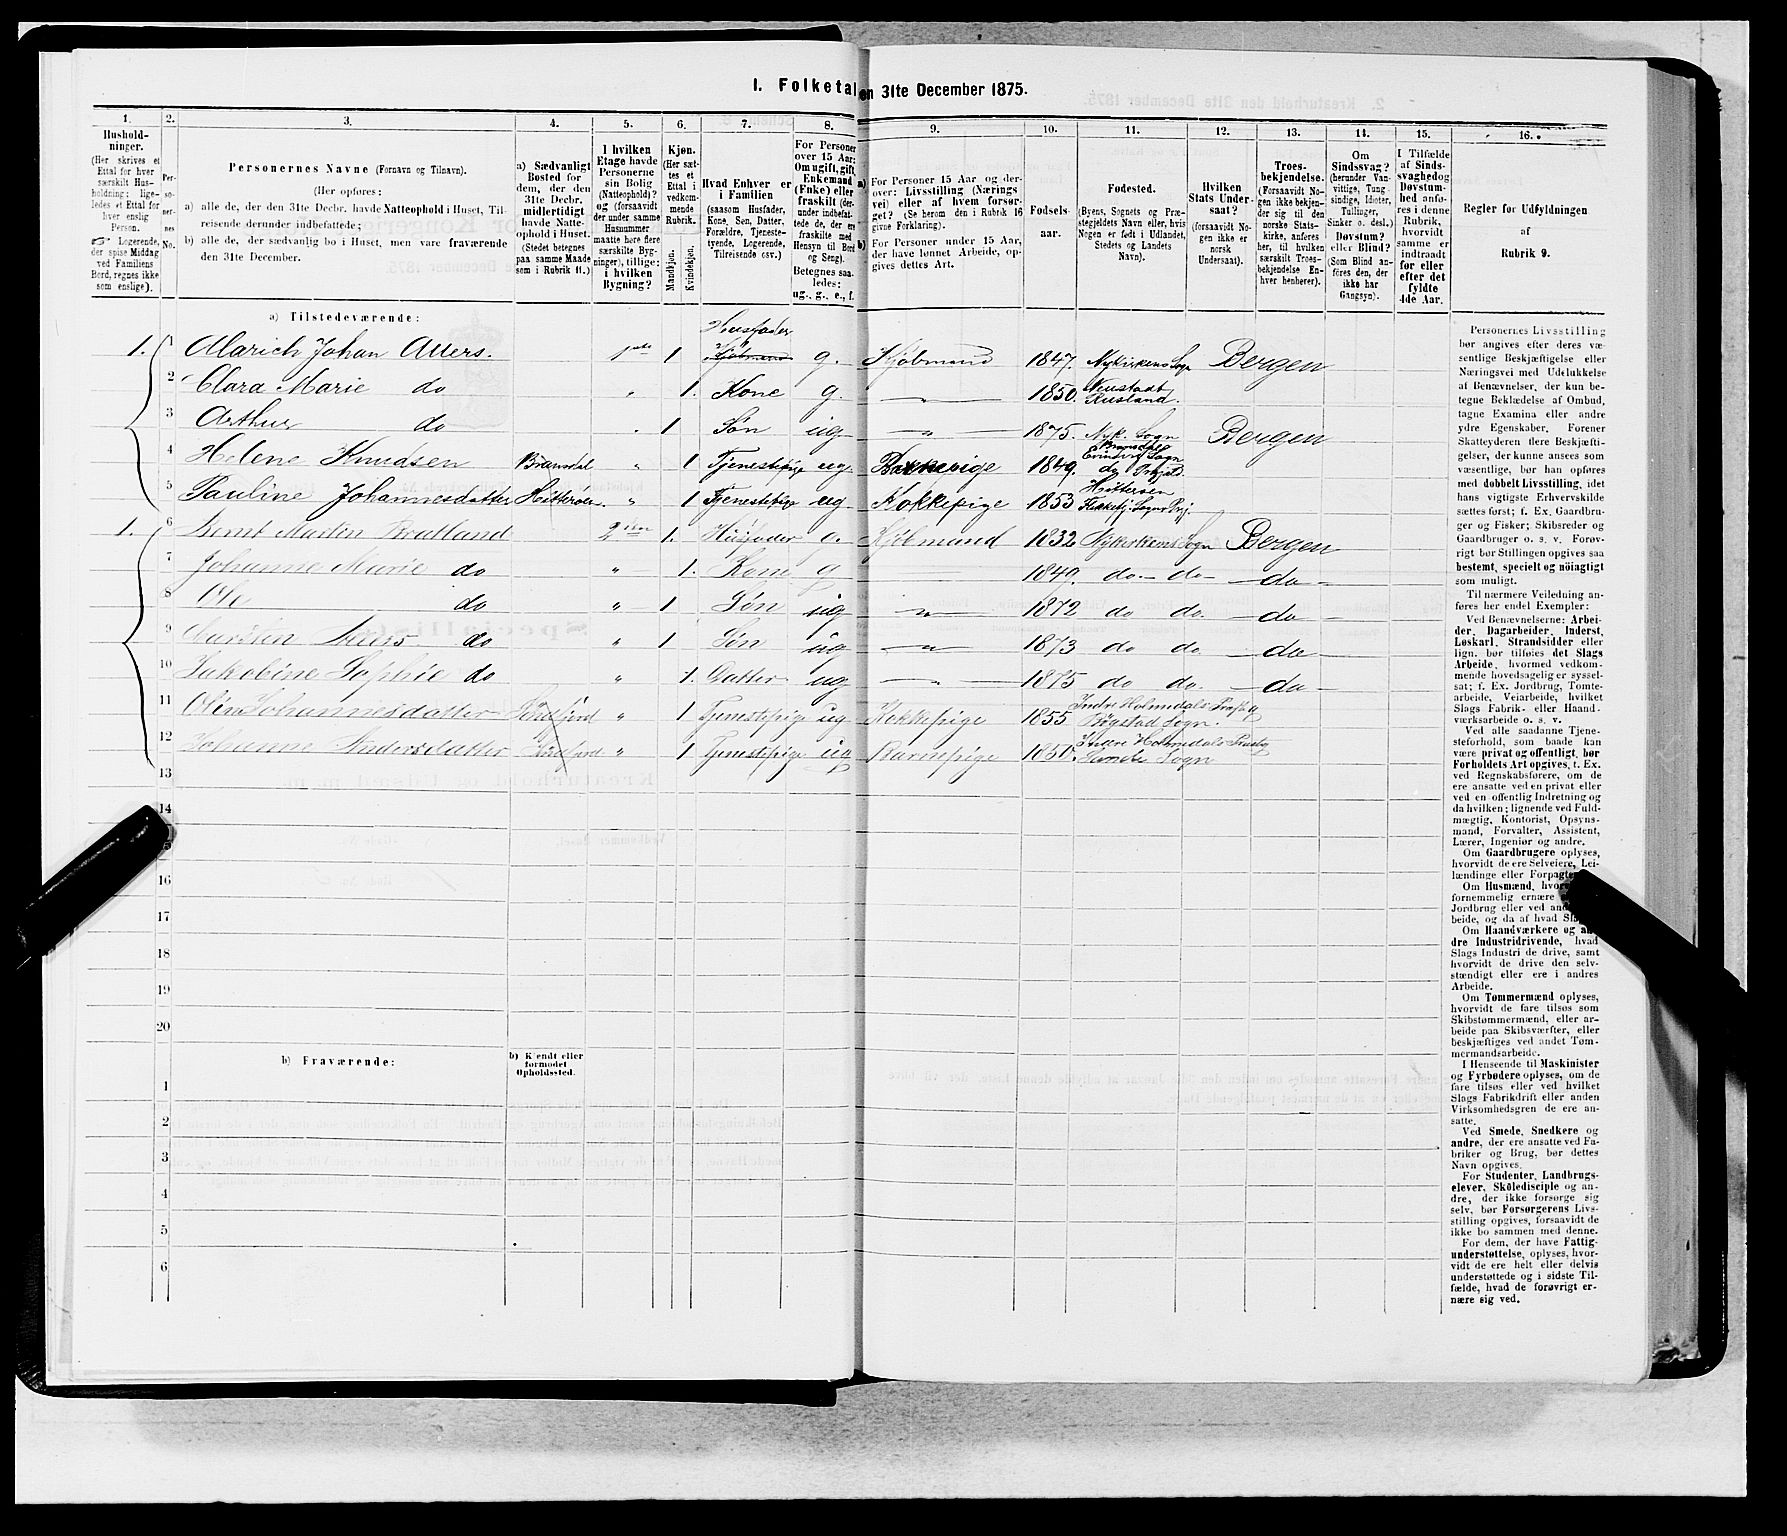 1. Folketal den 31te December 1875.
1. 2. 3. 4. 5. 6. 7. 8. 9. 10. 11. 12. 13. 14. 15. 16.
Hushold-
ninger.
(Her skrives et
Ettal for hver
særskilt Hus-
holdning; lige-
ledes et Ettal for
hver enslig
Person.
☞ Logerende,
der spise Middag
ved Familiens
Bord, regnes ikke
som enslige).
Per-
so-
ner-
nes
No.
Personernes Navne (Fornavn og Tilnavn).
(Her opføres:
a) alle de, der den 31te Decbr. havde Natteophold i Huset, Til-
reisende derunder indbefattede;
b) alle de, der sædvanlig bo i Huset, men vare fraværende
den 31te December.
a) Sædvanligt
Bosted for
dem, der den
31te Decbr.
midlertidigt
havde Natte-
ophold i Huset.
(Stedet betegnes
paa samme Maade
som i Rubrik 11.)
I hvilken
Etage havde
Personerne
sin Bolig
(Natteophold)?
og (forsaavidt
der under samme
Husnummer
maatte høre flere
særskilte Byg-
ninger), tillige:
i hvilken
Bygning?
Kjøn.
(Her sæt-
tes et
Ettal i
vedkom-
mende
Rubrik.
Mandkjøn.
Kvindekjøn.
Hvad Enhver er
i Familien
(saasom Husfader,
Kone, Søn, Datter.
Forældre, Tjeneste-
tyende, Logerende,
Tilreisende osv.)
For Personer
over 15 Aar:
Om ugift, gift
Enkemand
(Enke) eller
fraskilt (der-
under indbefat-
tede de, der ere
fraskilte med
Hensyn til Bord
og Seng).
Betegnes saa-
ledes:
ug., g., e., f.
a) For Personer 15 Aar og der-
over: Livsstilling (Nærings
vei) eller af hvem forsør-
get? (Se herom den i Rubrik 16
givne Forklaring).
b) For Personer under 15 Aar,
der have lønnet Arbeide, op-
gives dettes Art.
Fødsels-
aar.
Fødested.
(Byens, Sognets og Præ-
stegjeldets Navn eller, hvis
Nogen er født i Udlandet,
Stedets og Landets
Navn).
Hvilken
Stats Under-
saat?
(forsaavidt No-
gen ikke er
norsk
Undersaat).
Troes-
bekjendelse.
(Forsaavidt No-
gen ikke bekjen-
der sig til den
norske Stats-
kirke, anføres
her, til hvilken
særskilt Troes-
bekjendelse En-
hver henhører).
Om
Sindssvag?
(herunder Van-
vittige, Tung-
sindige, Idioter,
Tullinger,
Sinker o. desl.)
Døvstum?
eller Blind?
(Som Blind an-
føres den, der
ikke har
Gangsyn).
I Tilfælde
af Sinds-
svaghed og
Døvstum-
hed anfø-
res i denne
Rubrik,
hvorvidt
samme er
indtraadt
før eller
efter det
fyldte
4de Aar.
Regler for Udfyldningen
af
Rubrik 9.
a) Tilstedeværende:
1. 1 Alarich Johan Allers. 1ste 1 Husfader Kjøbmand g. Kjøbmand 1847. Nykirkens Sogn Bergen
2 Clara Marie do " 1. Kone g. 1850. Neustadt Rusland.
3 Arthur do " 1 Søn ug 1875. Nyk. Sogn Bergen
4 Helene Knudsen " 1 Tjenestepige ug 1849.
5 Pauline Johannesdatter Hitterøen " 1 Tjenestepige ug Kokkepige 1853 Hitterøen
1. 6 Bernt Martin 2den 1. Husfader g. Kjøbmand 1832 Nykirkens Sogn Bergen
7 Johanne Marie do " 1. Kone g 1849. do do do
8 Ole do " 1 Søn ug 1872 do do. do
9 do " 1 Søn ug 1873 do do. do
10 Jakobine Sophie do " 1. Datter ug 1875 do do. do
11 Johannesdatter Søndfjord " 1 Tjenestepige ug Kokkepige 1855 Indre Holmedals Bygstad Sogn.
12 Johanne Andersdatter Søndfjord " 1 Tjenestepige ug Barnepige 1851. Indre Holmedals Sande Sogn
13
14
16
17
18
19
20
b) Fraværende:
b) Kjendt eller
formodet
Opholdssted.
1
2
3
4
5
6
Personernes Livsstilling
bør angives efter deres væ-
sentlige Beskjæftigelse eller
Næringsvei med Udelukkelse
af Benævnelser, der kun be-
tegne Beklædelse af Ombud,
tagne Examina eller andre
ydre Egenskaber. Forener
Skatteyderen flere Beskjæfti-
gelser, der kunne ansees som
væsentlige, bør han opføres
med dobbelt Livsstilling, idet
hans vigtigste Erhvervskilde
sættes først; f. Ex. Gaardbru-
ger og Fisker; Skibsreder og
Gaardbruger o. s. v. Forøv-
rigt bør Stillingen opgives saa
bestemt, specielt og nöiagtigt
som muligt.
Til nærmere Veiledning an-
føres her endel Exempler:
Ved Benævnelserne: Arbei-
der, Dagarbeider, Inderst,
Løskarl, Strandsidder eller
lign. bør tilføies det Slags
Arbeide, hvormed vedkom-
mende hovedsagelig er syssel-
sat; f. Ex. Jordbrug, Tomte-
arbeide, Veiarbeide, hvilket
Slags Fabrik- eller Haand-
værksarbeide o. s. v.
Ved alle saadanne Tjene-
steforhold, som baade kan
være privat og offentligt, bør
Forholdets Art opgives, f. Ex.
ved Regnskabsførere, om de
ere ansatte ved en privat eller
ved en offentlig Indretning og
da hvilken; lignende ved Fuld-
mægtig, Kontorist, Opsyns-
mand, Forvalter, Assistent,
Lærer, Ingeniør og andre.
Om Gaardbrugere oplyses,
hvorvidt de ere Selveiere, Lei-
lændinge eller
Om Husmænd,
fornemmelig ernære
Jordbrug eller ved
beide, og da af hvad
Om Haandværkere og an-
dre Industridrivende, hvad
Slags Industri de drive, samt
hvorvidt de drive den selv-
stændigt eller ere i andres
Arbeide.
Om Tømmermænd oplyses,
hvorvidt de fare tilsøs som
Skibstømmermænd, eller ar-
beide paa Skibsværfter, eller
beskjæftiges ved andet Tøm-
mermandsarbeide.
I Henseende til Maskinister
og Fyrbødere oplyses, om de
fare tilsøs eller ved hvilket
Slags Fabrikdrift eller anden
Virksomhedsgren de ere an-
satte.
Ved Smede, Snedkere og
andre, der ere ansatte ved Fa-
briker og Brug, bør dettes
Navn opgives.
For Studenter, Landbrugs-
elever, Skôledisciple og an-
dre, der ikke forsørge sig
selv, bør Forsørgerens Livs-
stilling opgives, forsaavidt de
ikke bo sammen med denne.
For dem, der have Fattig-
understøttelse, oplyses, hvor-
vidt de ere helt eller delvis
understøttede og i sidste Til-
fælde, hvad de forøvrigt er-
nære sig ved.